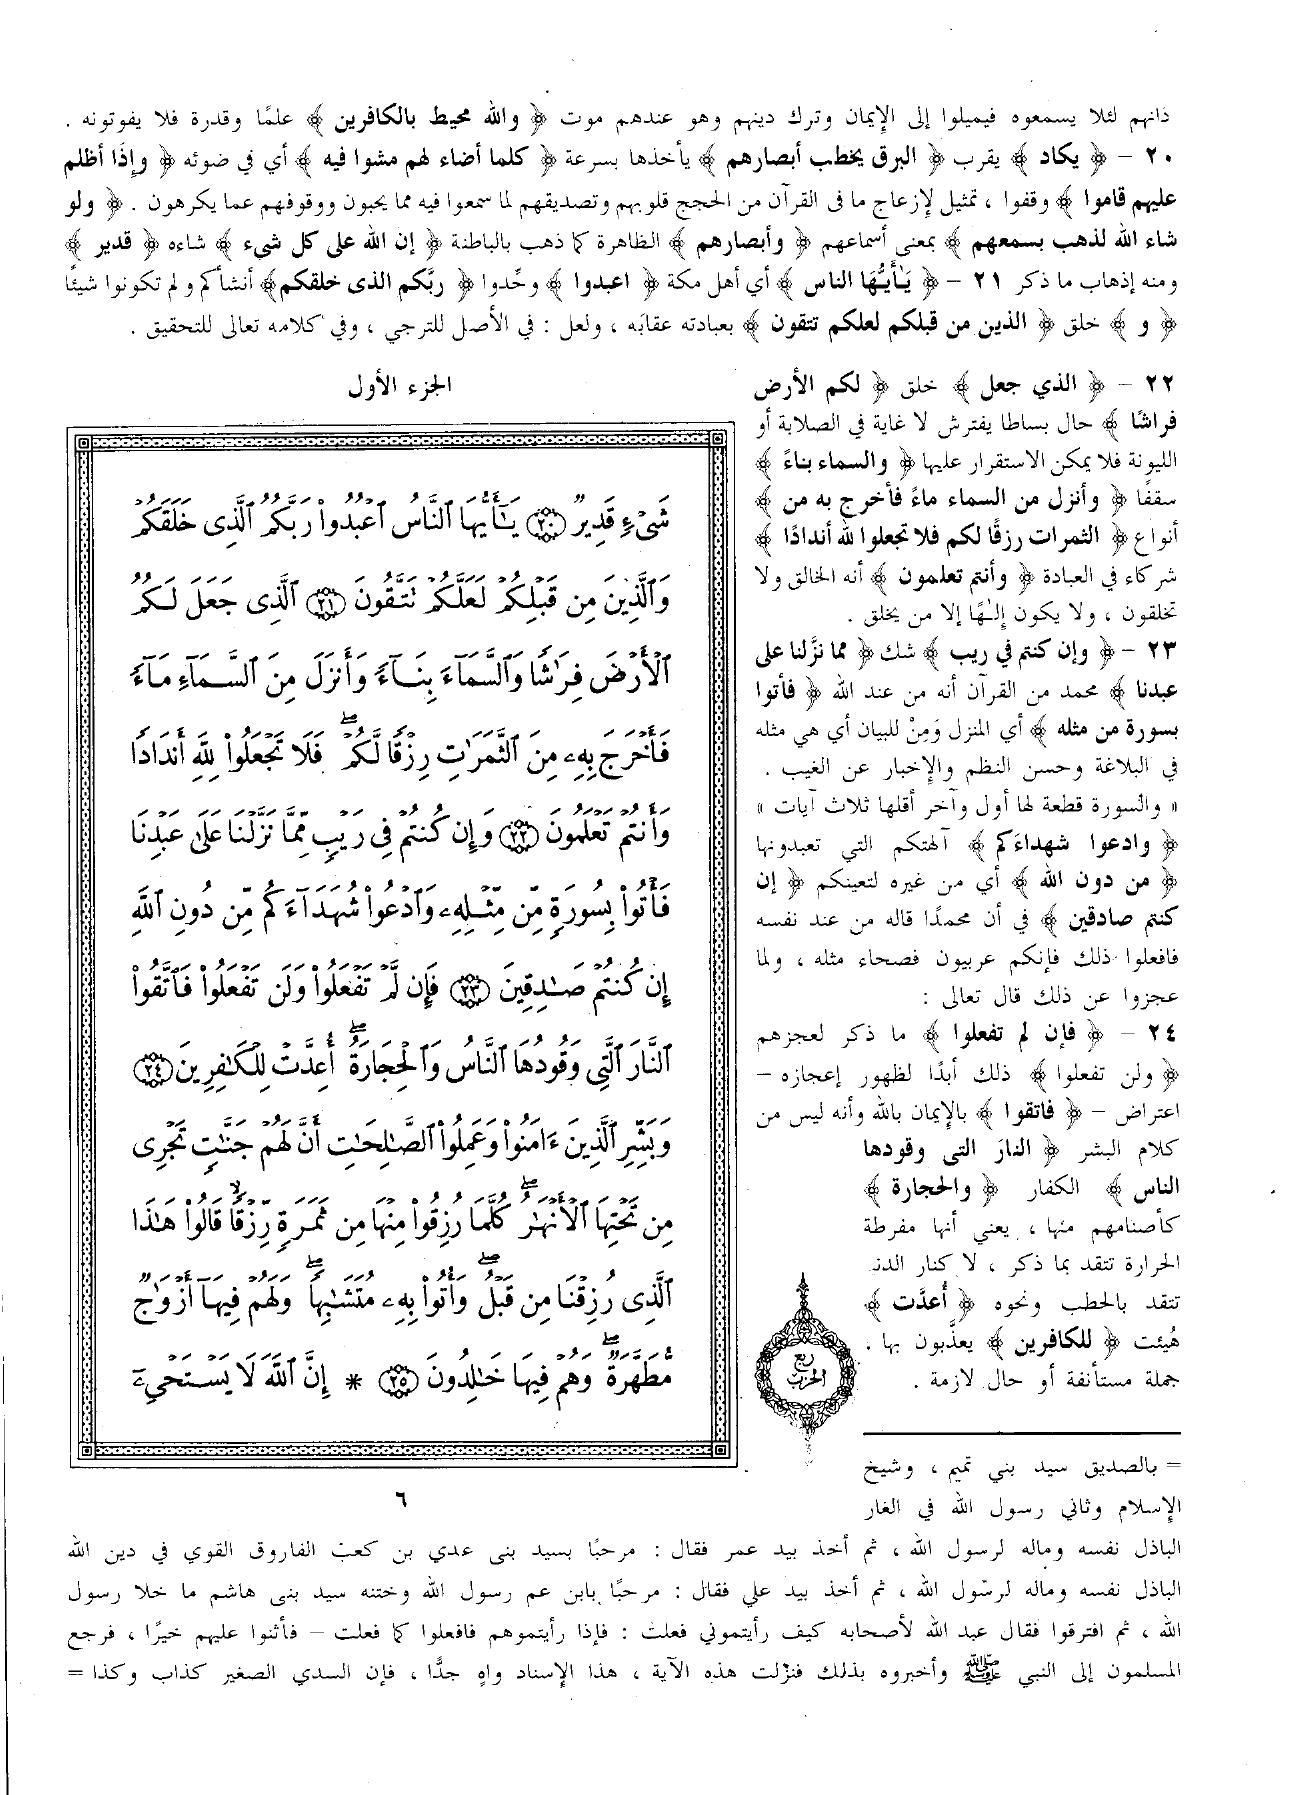 ذانهم لئلا يسمعوه فيميلوا إلى الإيمان وترك دينهم وهو عندهم موت ﴿ والله محيط بالكافرين ﴾ علمًا وقدرة فلا يفوتونه .
٢٠ – ﴿ يكاد ﴾ يقرب ﴿ البرق يخطب أبصارهم ﴾ يأخذها بسرعة ﴿ كلما أضاء لهم مشوا فيه ﴾ أي في ضوئه ﴿ وإذَا أظلم
عليهم قاموا ﴾ وقفوا ، تمثيل لإزعاج ما فى القرآن من الحجج قلوبهم وتصديقهم لما سمعوا فيه مما يحبون ووقوفهم عما يكرهون . ﴿ ولو
شاء الله لذهب بسمعهم ﴾ بمعنى أسماعهم ﴿ وأبصارهم ﴾ الظاهرة كما ذهب بالباطنة ﴿ إن الله على كل شيء ﴾ شاءه ﴿ قدير ﴾
ومنه إذهاب ما ذكر ٢١ – ﴿ يَـٰأَيُّهَا الناس ﴾ أي أهل مكة ﴿ اعبدوا ﴾ وحِّدوا ﴿ ربَّكم الذى خلقكم ﴾ أنشأكم ولم تكونوا شيئًا
﴿ و ﴾ خلق ﴿ الذين من قبلكم لعلكم تتقون ﴾ بعبادته عقابَه ، ولعل : في الأصل للترجي ، وفي كلامه تعالى للتحقيق .
٢٢ – ﴿ الذي جعل ﴾ خلق ﴿ لكم الأرض
فراشًا ﴾ حال بساطا يفترش لا غاية في الصلابة أو
الليونة فلا يمكن الاستقرار عليها ﴿ والسماء بناءً ﴾
سقفًا ﴿ وأنزل من السماء ماءً فأخرج به من ﴾
أنواع ﴿ الثمرات رزقًا لكم فلا تجعلوا لله أندادًا ﴾
شركاء في العبادة ﴿ وأنتم تعلمون ﴾ أنه الخالق ولا
تخلقون ، ولا يكون إلـٰهًا إلا من يخلق .
٢٣ – ﴿ وإن كنتم في ريب ﴾ شك ﴿ مما نزَّلنا على
عبدنا ﴾ محمد من القرآن أنه من عند الله ﴿ فأتوا
بسورة من مثله ﴾ أي المنزل وَمِنْ للبيان أي هي مثله
في البلاغة وحسن النظم والإخبار عن الغيب .
« والسورة قطعة لها أول وآخر أقلها ثلاث آيات »
﴿ وادعوا شهداءَكم ﴾ آلهتكم التي تعبدونها
﴿ من دون الله ﴾ أي من غيره لتعينكم ﴿ إن
كنتم صادقين ﴾ في أن محمدًا قاله من عند نفسه
فافعلوا ذلك فإنكم عربيون فصحاء مثله ، ولما
عجزوا عن ذلك قال تعالى :
٢٤ – ﴿ فإن لم تفعلوا ﴾ ما ذكر لعجزهم
﴿ ولن تفعلوا ﴾ ذلك أبدًا لظهور إعجازه –
اعتراض – ﴿ فاتقوا ﴾ بالإيمان بالله وأنه ليس من
كلام البشر ﴿ النارَ التى وقودها
الناس ﴾ الكفار ﴿ والحجارة ﴾
كأصنامهم منها ، يعني أنها مفرطة
الحرارة تتقد بما ذكر ، لا كنار الدنـ
تتقد بالحطب ونحوه ﴿ أُعدَّت ﴾
هُيئت ﴿ للكافرين ﴾ يعذَّبون بها .
جملة مستأنفة أو حال لازمة .
ربع
الحزب
الجزء الأول
شَىْءٍ قَدِيرٌ ۝٢٠ يَـٰٓأَيُّهَا ٱلنَّاسُ ٱعْبُدُوا۟ رَبَّكُمُ ٱلَّذِى خَلَقَكُمْ
وَٱلَّذِينَ مِن قَبْلِكُمْ لَعَلَّكُمْ تَتَّقُونَ ۝٢١ ٱلَّذِى جَعَلَ لَكُمُ
ٱلْأَرْضَ فِرَٰشًا وَٱلسَّمَآءَ بِنَآءً وَأَنزَلَ مِنَ ٱلسَّمَآءِ مَآءً
فَأَخْرَجَ بِهِۦ مِنَ ٱلثَّمَرَٰتِ رِزْقًا لَّكُمْ ۖ فَلَا تَجْعَلُوا۟ لِلَّهِ أَندَادًا
وَأَنتُمْ تَعْلَمُونَ ۝٢٢ وَإِن كُنتُمْ فِى رَيْبٍ مِّمَّا نَزَّلْنَا عَلَىٰ عَبْدِنَا
فَأْتُوا۟ بِسُورَةٍ مِّن مِّثْلِهِۦ وَٱدْعُوا۟ شُهَدَآءَكُم مِّن دُونِ ٱللَّهِ
إِن كُنتُمْ صَـٰدِقِينَ ۝٢٣ فَإِن لَّمْ تَفْعَلُوا۟ وَلَن تَفْعَلُوا۟ فَٱتَّقُوا۟
ٱلنَّارَ ٱلَّتِى وَقُودُهَا ٱلنَّاسُ وَٱلْحِجَارَةُ ۖ أُعِدَّتْ لِلْكَـٰفِرِينَ ۝٢٤
وَبَشِّرِ ٱلَّذِينَ ءَامَنُوا۟ وَعَمِلُوا۟ ٱلصَّـٰلِحَـٰتِ أَنَّ لَهُمْ جَنَّـٰتٍ تَجْرِى
مِن تَحْتِهَا ٱلْأَنْهَـٰرُ ۖ كُلَّمَا رُزِقُوا۟ مِنْهَا مِن ثَمَرَةٍ رِّزْقًا ۙ قَالُوا۟ هَـٰذَا
ٱلَّذِى رُزِقْنَا مِن قَبْلُ ۖ وَأُتُوا۟ بِهِۦ مُتَشَـٰبِهًا ۖ وَلَهُمْ فِيهَآ أَزْوَٰجٌ
مُّطَهَّرَةٌ ۖ وَهُمْ فِيهَا خَـٰلِدُونَ ۝٢٥ * إِنَّ ٱللَّهَ لَا يَسْتَحْىِۦٓ
٦
= بالصديق سيد بني تميم ، وشيخ
الإسلام وثاني رسول الله في الغار
الباذل نفسه وماله لرسول الله ، ثم أخذ بيد عمر فقال : مرحبًا بسيد بنى عدي بن كعب الفاروق القوي في دين الله
الباذل نفسه وماله لرسول الله ، ثم أخذ بيد علي فقال : مرحبًا بابن عم رسول الله وختنه سيد بنى هاشم ما خلا رسول
الله ، ثم افترقوا فقال عبد الله لأصحابه كيف رأيتموني فعلت : فإذا رأيتموهم فافعلوا كما فعلت – فأثنوا عليهم خيرًا ، فرجع
المسلمون إلى النبي ﷺ وأخبروه بذلك فنزلت هذه الآية ، هذا الإسناد واهٍ جدًّا ، فإن السدي الصغير كذاب وكذا =